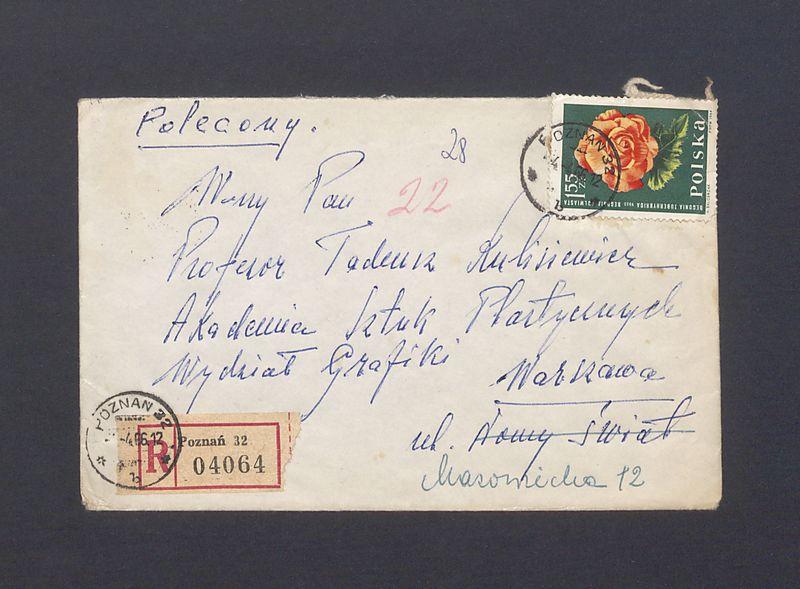 Polecony.
28
POZNAŃ 32
b
1.55 ZŁ
Polska
BEGONIA TUBERHYBRIDA
22
Wny Pan
Profesor Tadeusz Kulisiewicz
Akademia Sztuk Plastycznych
Wydział Grafiki
Warszawa
ul. Nowy Świat
Mazowiecka 12
POZNAŃ 32
-4.66.12
b
R
Poznań 32
04064